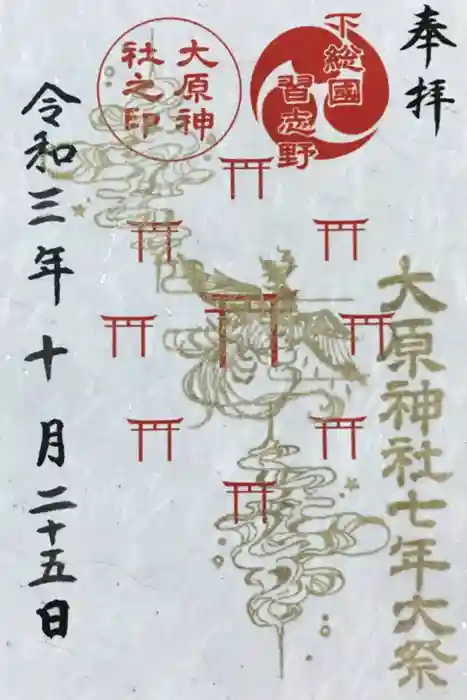 奉拝
下総國
習志野
大原神
社之印
大原神社七年大祭
令和三年十月二十五日